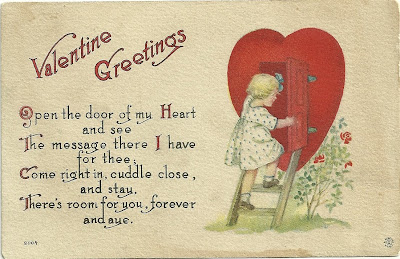 Valentine
Greetings
Open the door of my Heart
and see
The message there I have
for thee.
Come right in, cuddle close,
and stay,
There's room for you, forever
and aye.